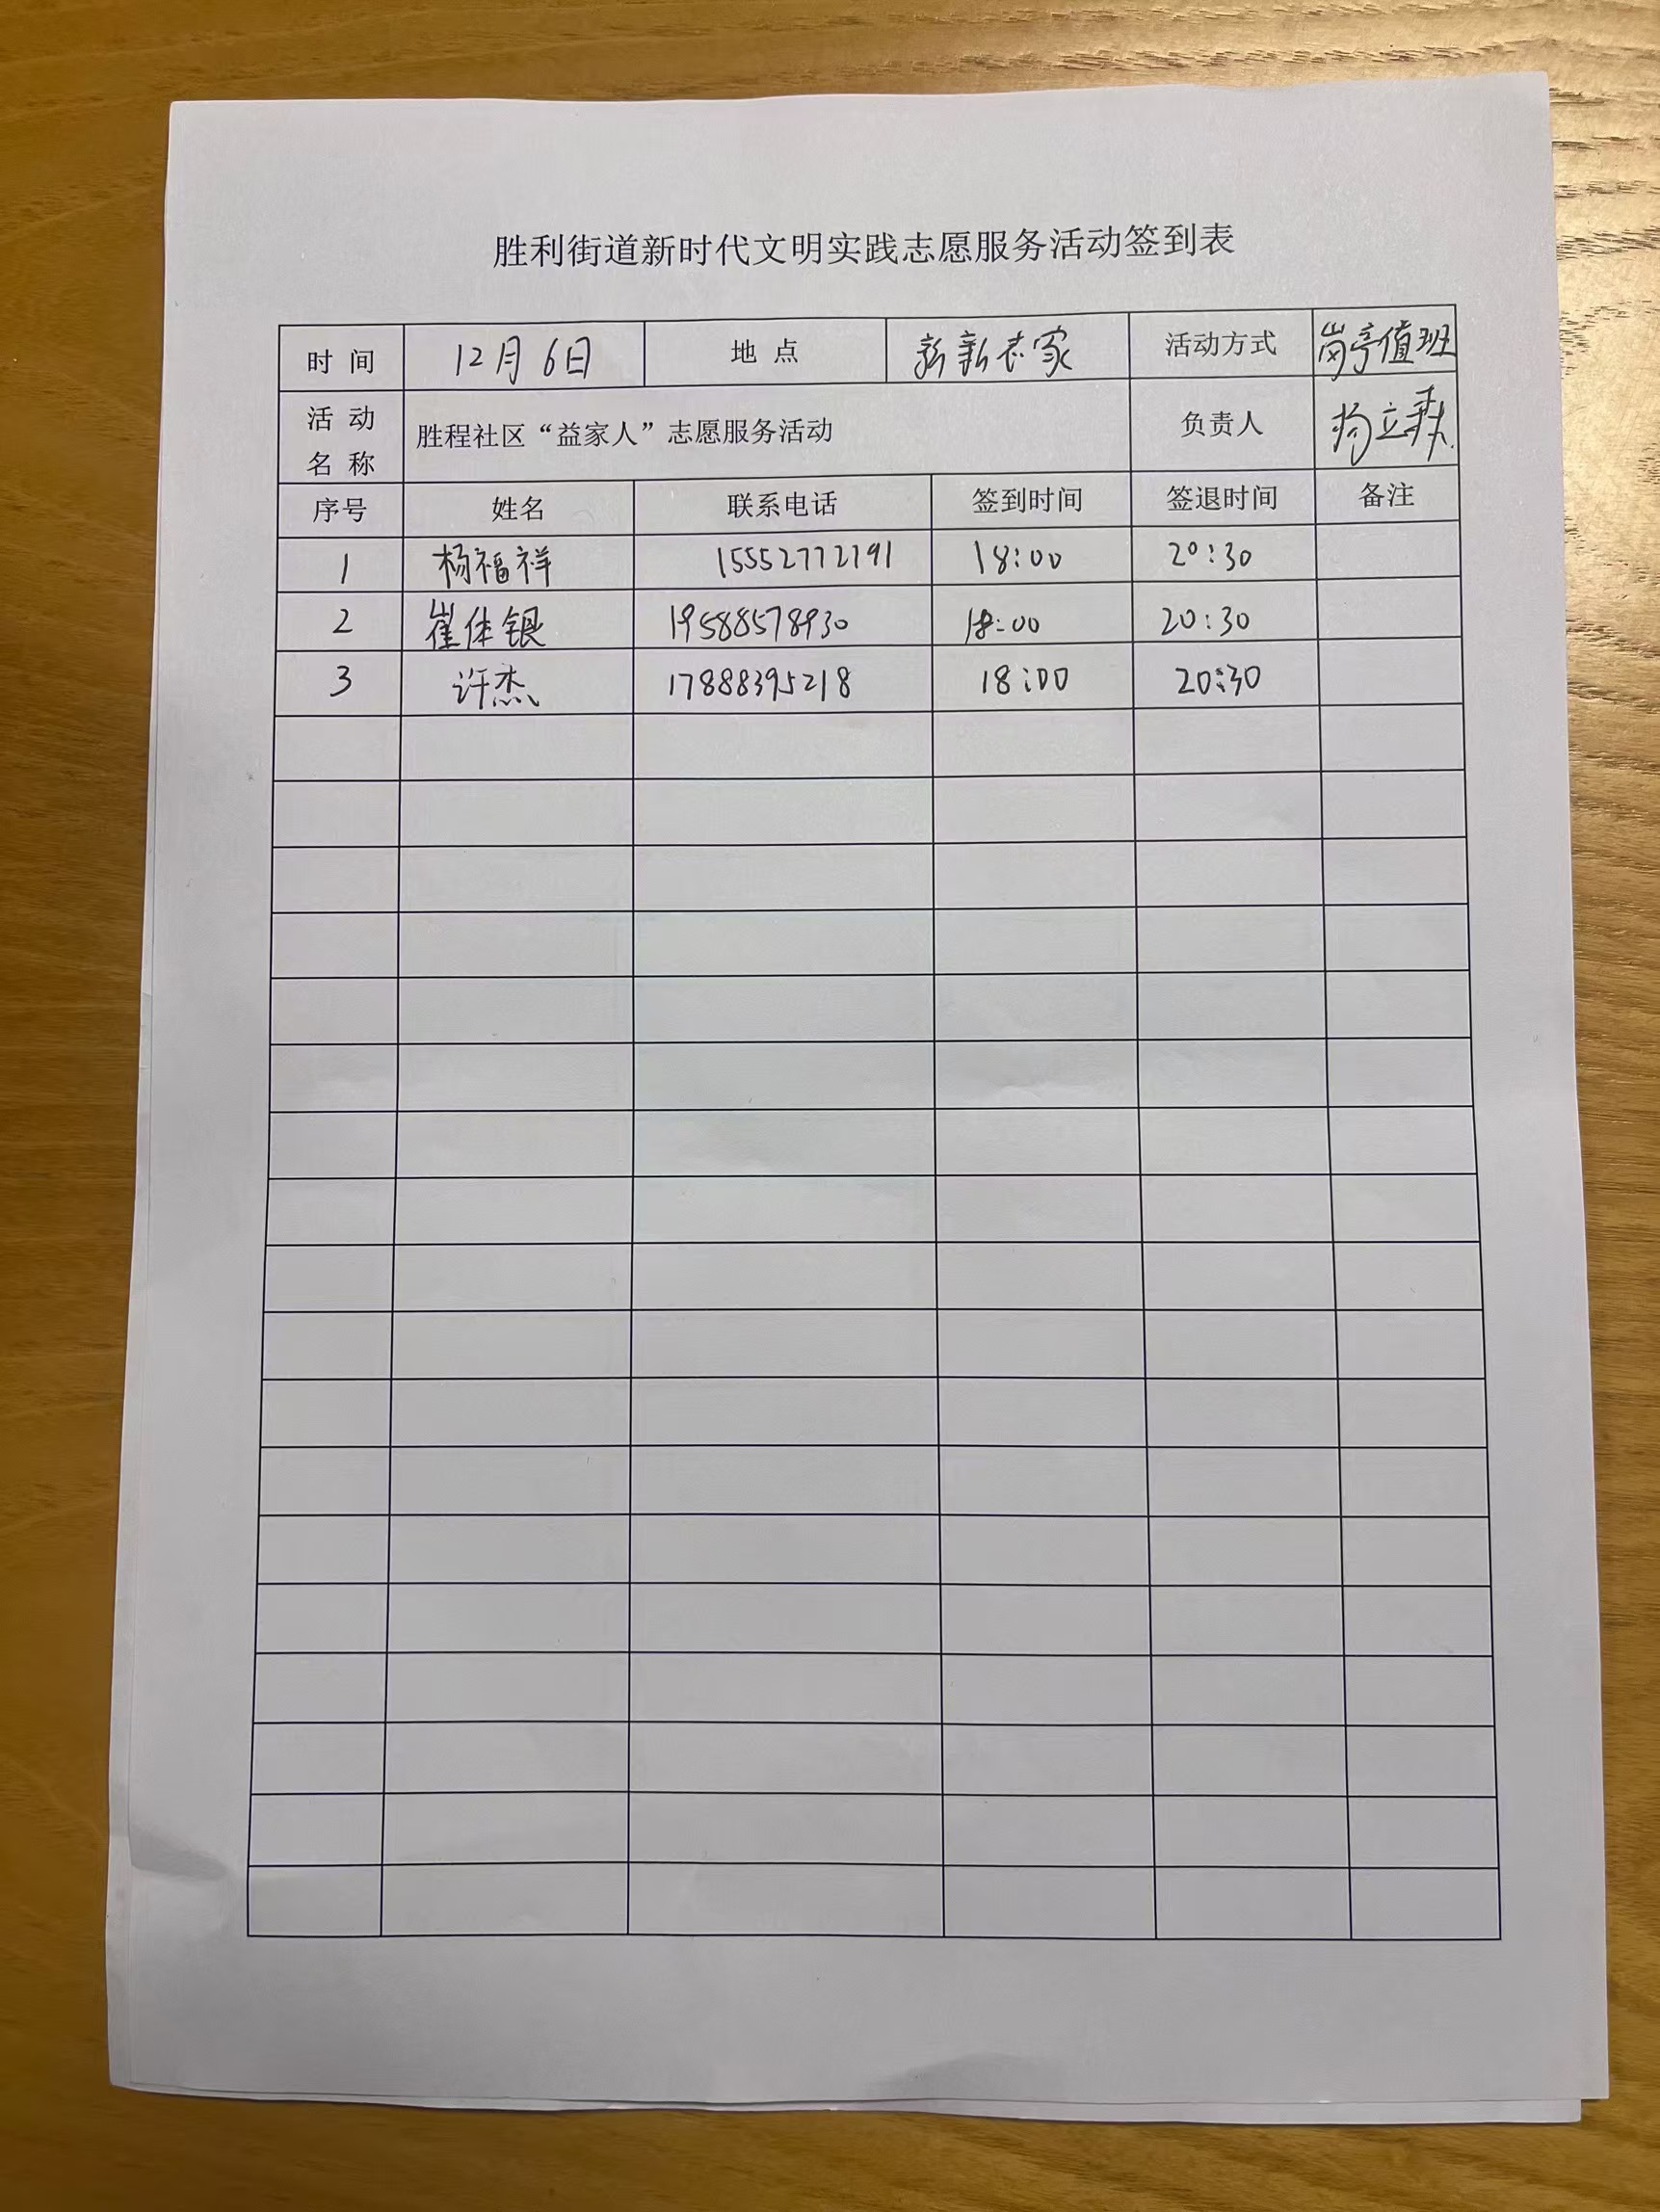 胜利街道新时代文明实践志愿服务活动签到表
时 间 12月6日 地 点 新新志家 活动方式 岗亭值班
活 动 名 称 胜程社区“益家人”志愿服务活动 负责人 杨立
序号 姓名 联系电话 签到时间 签退时间 备注
1 杨福祥 15552772791 18:00 20:30
2 崔体银 19588578930 18:00 20:30
3 许杰 17888395218 18:00 20:30